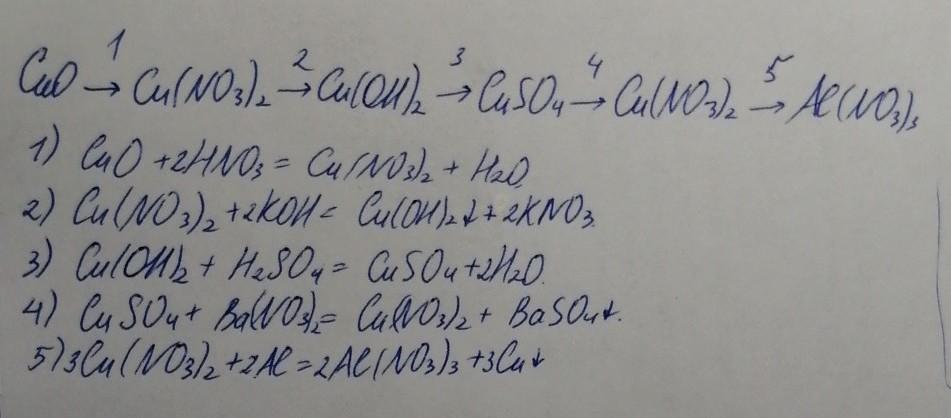 CuO →1 Cu(NO3)2 →2 Cu(OH)2 →3 CuSO4 →4 Cu(NO3)2 →5 Al(NO3)3
1) CuO + 2HNO3 = Cu(NO3)2 + H2O
2) Cu(NO3)2 + 2KOH = Cu(OH)2↓ + 2KNO3.
3) Cu(OH)2 + H2SO4 = CuSO4 + 2H2O.
4) CuSO4 + Ba(NO3)2 = Cu(NO3)2 + BaSO4↓.
5) 3Cu(NO3)2 + 2Al = 2Al(NO3)3 + 3Cu↓